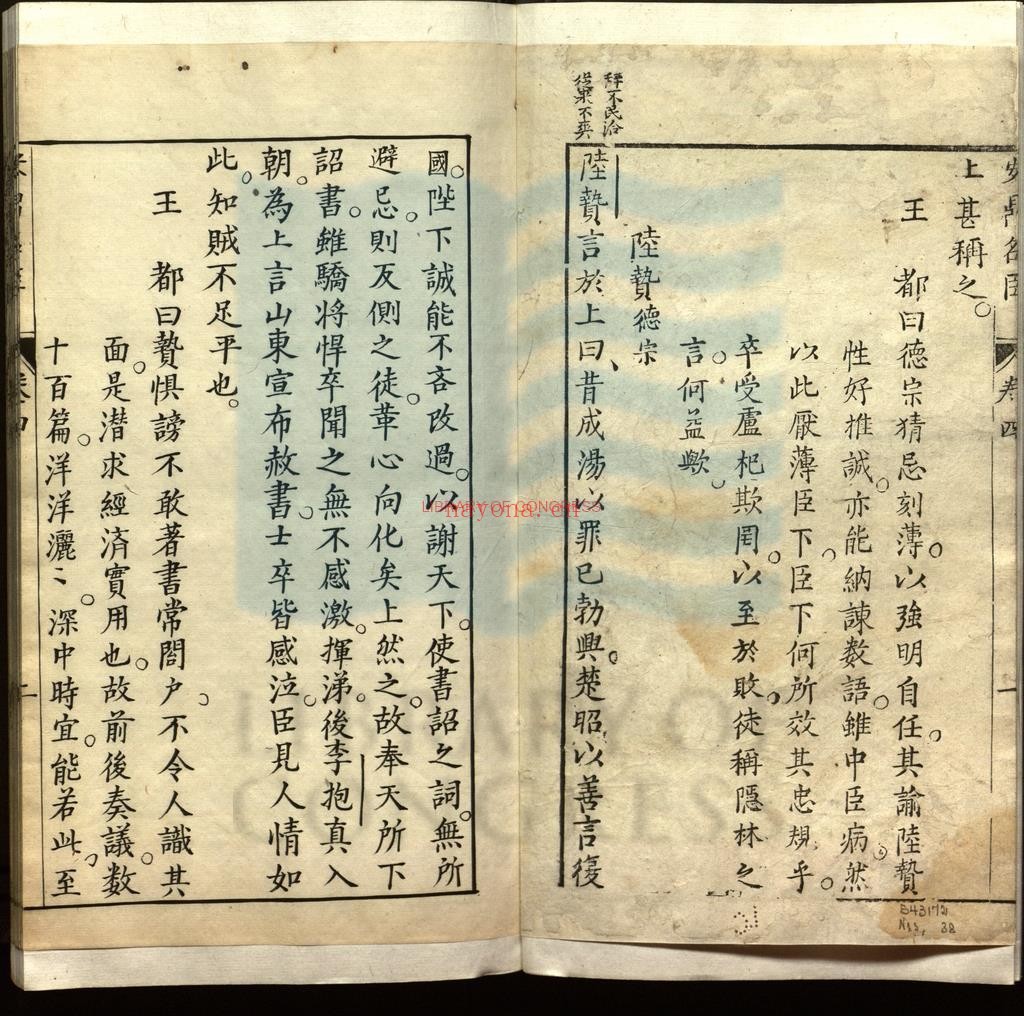 上甚稱之
王　都曰德宗猜忌刻薄以強明自任其諭陸贄
性好推誠亦能納諫數語雖中臣病然
以此厭薄臣下臣下何所效其忠規乎
卒受盧杞欺罔以至於敗徒稱隱林之
言何益歟
陸贄德宗
陸贄言於上曰昔成湯以罪己勃興楚昭以善言復
國陛下誠能不吝改過以謝天下使書詔之詞無所
避忌則反側之徒革心向化矣上然之故奉天所下
詔書雖驕將悍卒聞之無不感激揮涕後李抱真入
朝為上言山東宣布赦書士卒皆感泣臣見人情如
此知賊不足平也
王　都曰贄惧謗不敢著書常閤户不令人識其
面是潜求經済實用也故前後奏議数
十百篇洋洋灑〻深中時宜能若此至
卷四
一
LIBRARY OF CONGRESS
nayona.cn